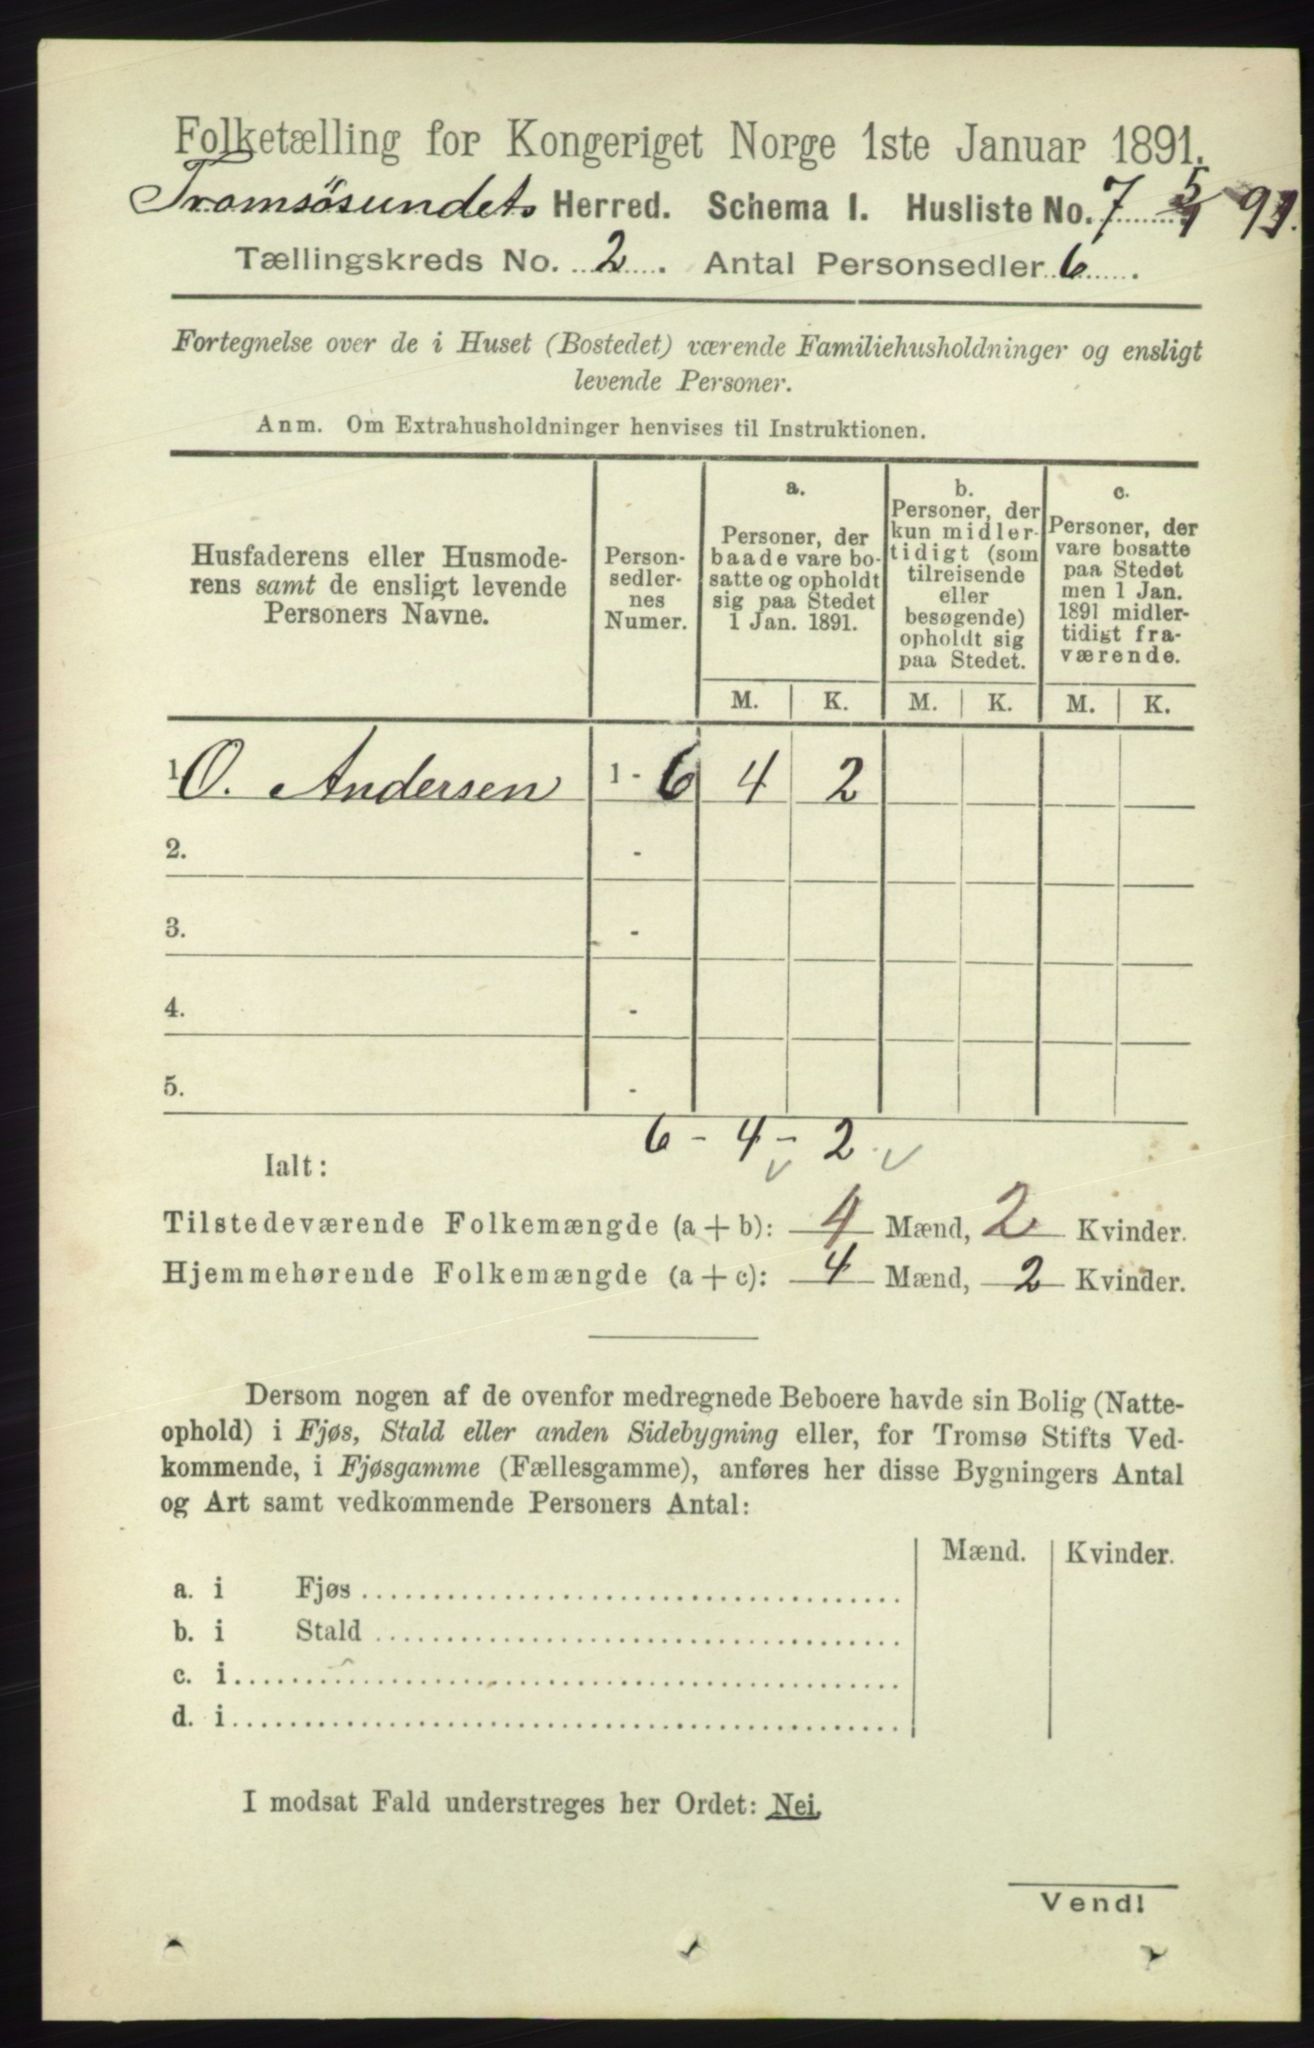 Folketælling for Kongeriget Norge 1ste Januar 1891.
Tromsösundets Herred. Schema I. Husliste No. 7 5/1 91.
Tællingskreds No. 2. Antal Personsedler 6.
Fortegnelse over de i Huset (Bostedet) værende Familiehusholdninger og ensligt
levende Personer.
Anm. Om Extrahusholdninger henvises til Instruktionen.
Husfaderens eller Husmode-
rens samt de ensligt levende
Personers Navne.
Person-
sedler-
nes
Numer.
a.
Personer, der
baade vare bo-
satte og opholdt
sig paa Stedet
1 Jan. 1891.
b.
Personer, der
kun midler-
tidigt (som
tilreisende
eller
besøgende)
opholdt sig
paa Stedet.
c.
Personer, der
vare bosatte
paa Stedet
men 1 Jan.
1891 midler-
tidigt fra-
værende.
M. K. M. K. M. K.
1. O. Andersen 1 - 6 4 2
2. -
3. -
4. -
5. -
6 - 4 - 2
Ialt:
Tilstedeværende Folkemængde (a + b): 4 Mænd, 2 Kvinder.
Hjemmehørende Folkemængde (a + c): 4 Mænd, 2 Kvinder.
Dersom nogen af de ovenfor medregnede Beboere havde sin Bolig (Natte-
ophold) i Fjøs, Stald eller anden Sidebygning eller, for Tromsø Stifts Ved-
kommende, i Fjøsgamme (Fællesgamme), anføres her disse Bygningers Antal
og Art samt vedkommende Personers Antal:
Mænd. Kvinder.
a. i Fjøs
b. i Stald
c. i
d. i
I modsat Fald understreges her Ordet: Nei.
Vend!